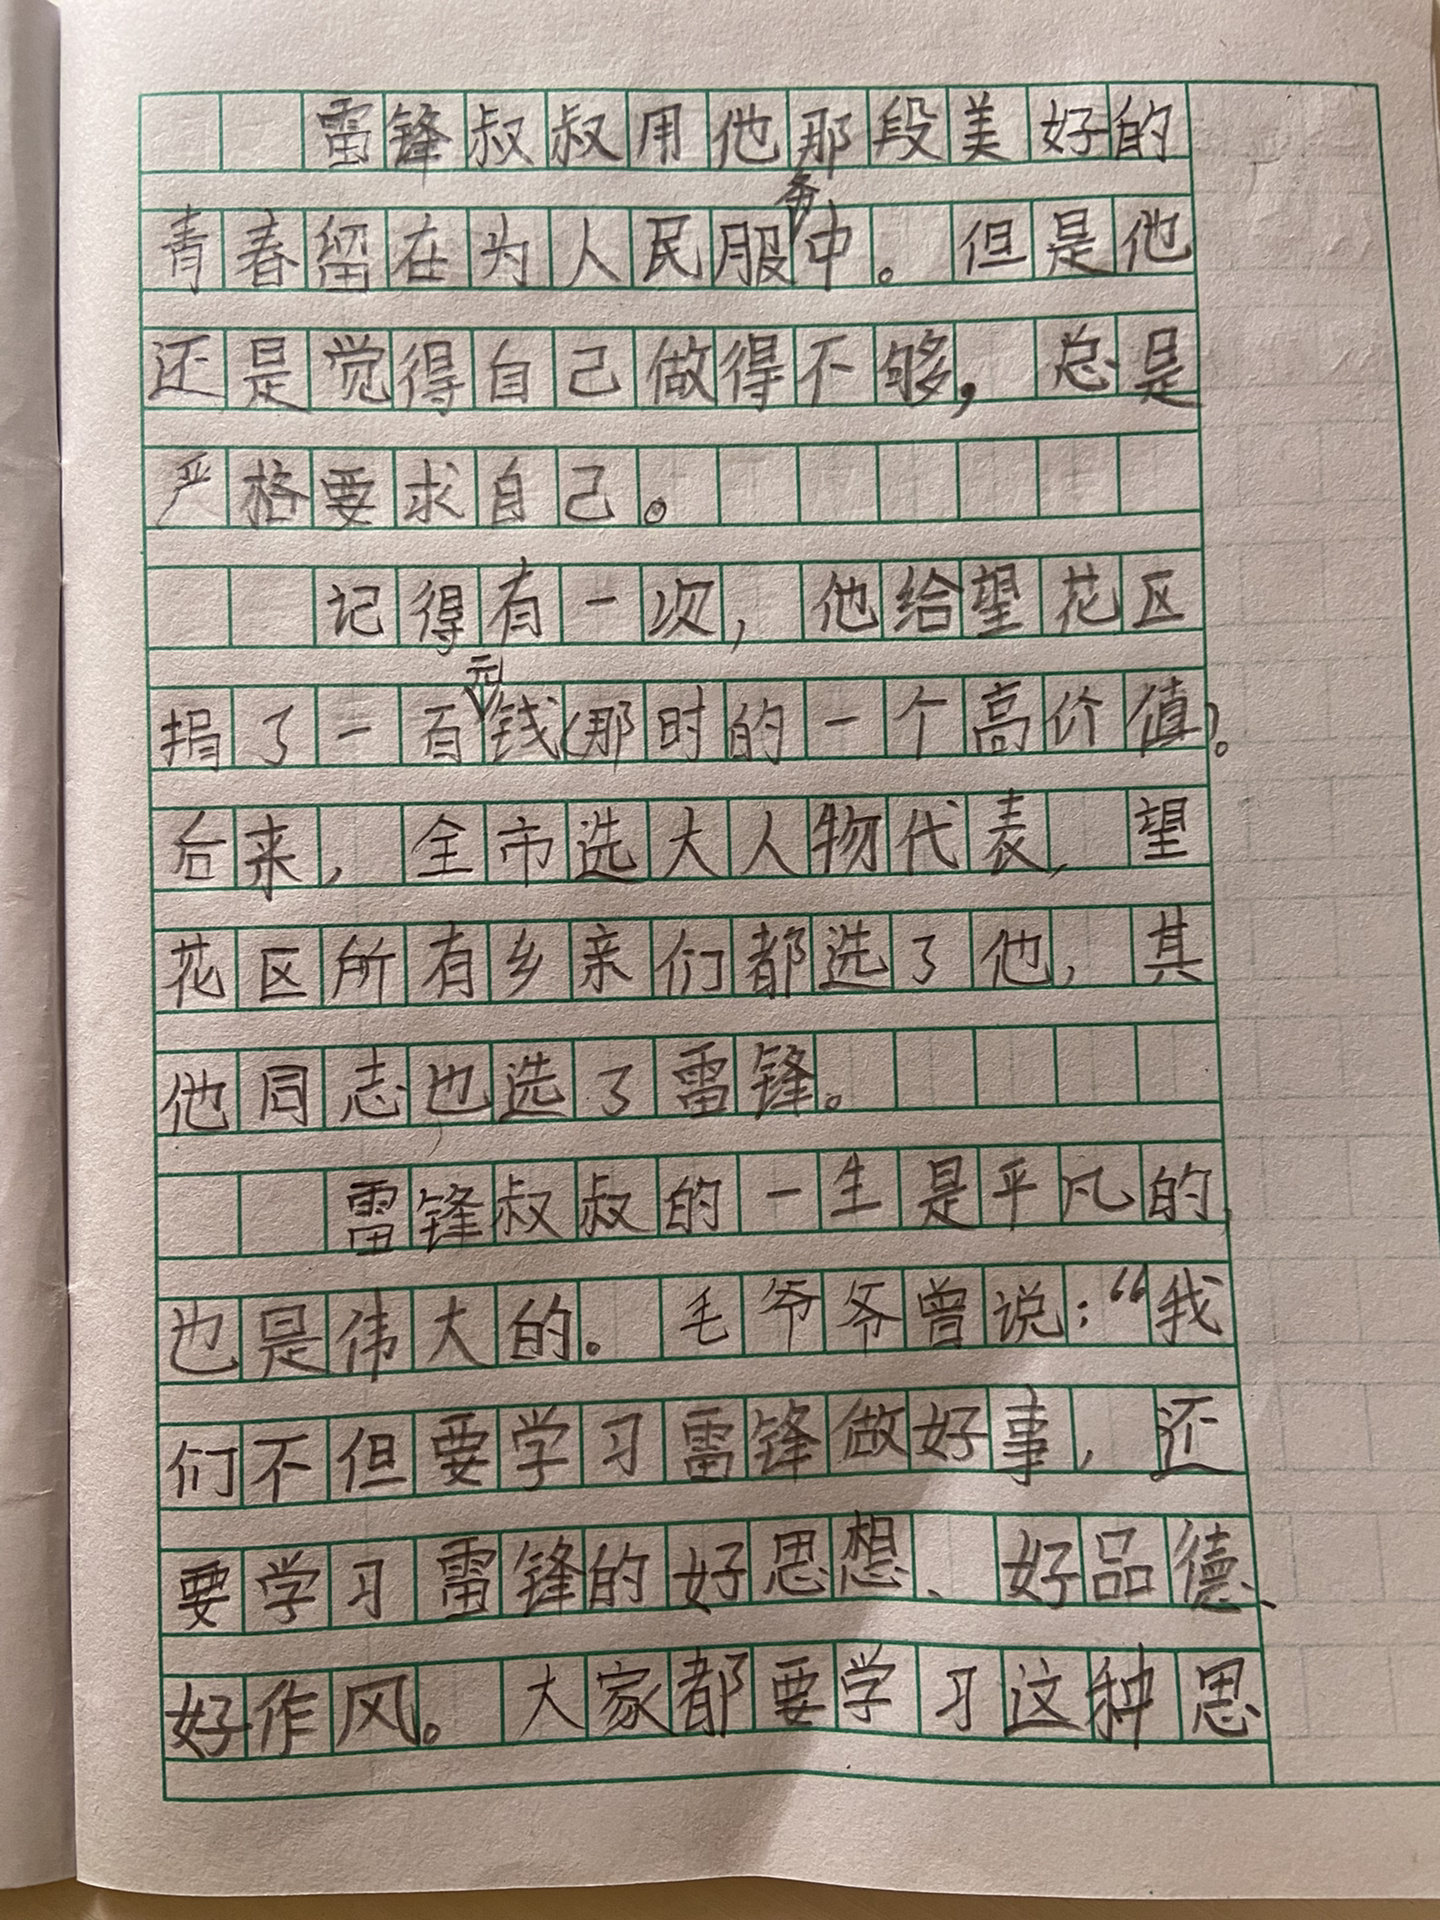 雷锋叔叔用他那段美好的
青春留在为人民服务中。但是他
还是觉得自己做得不够，总是
严格要求自己。
记得有一次，他给望花区
捐了一百元钱(那时的一个高价值)。
后来，全市选大人物代表，望
花区所有乡亲们都选了他，其
他同志也选了雷锋。
雷锋叔叔的一生是平凡的，
也是伟大的。毛爷爷曾说：“我
们不但要学习雷锋做好事，还
要学习雷锋的好思想、好品德、
好作风。大家都要学习这种思